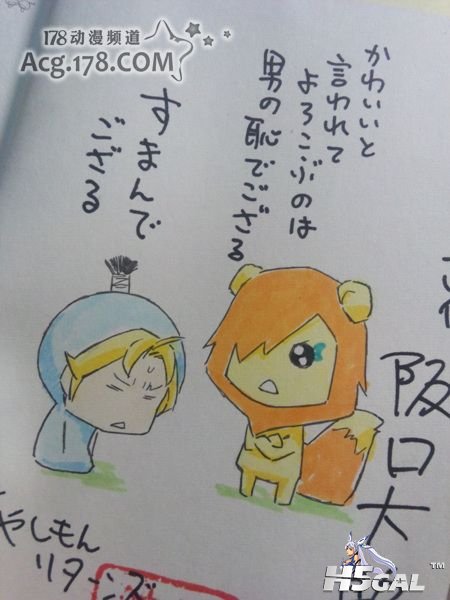 178动漫频道
Acg.178.COM
かわいいと
言われて
よろこぶのは
男の恥でござる
すまんで
ござる
阪口大
やしもん
リターンズ
H5GAL
TM